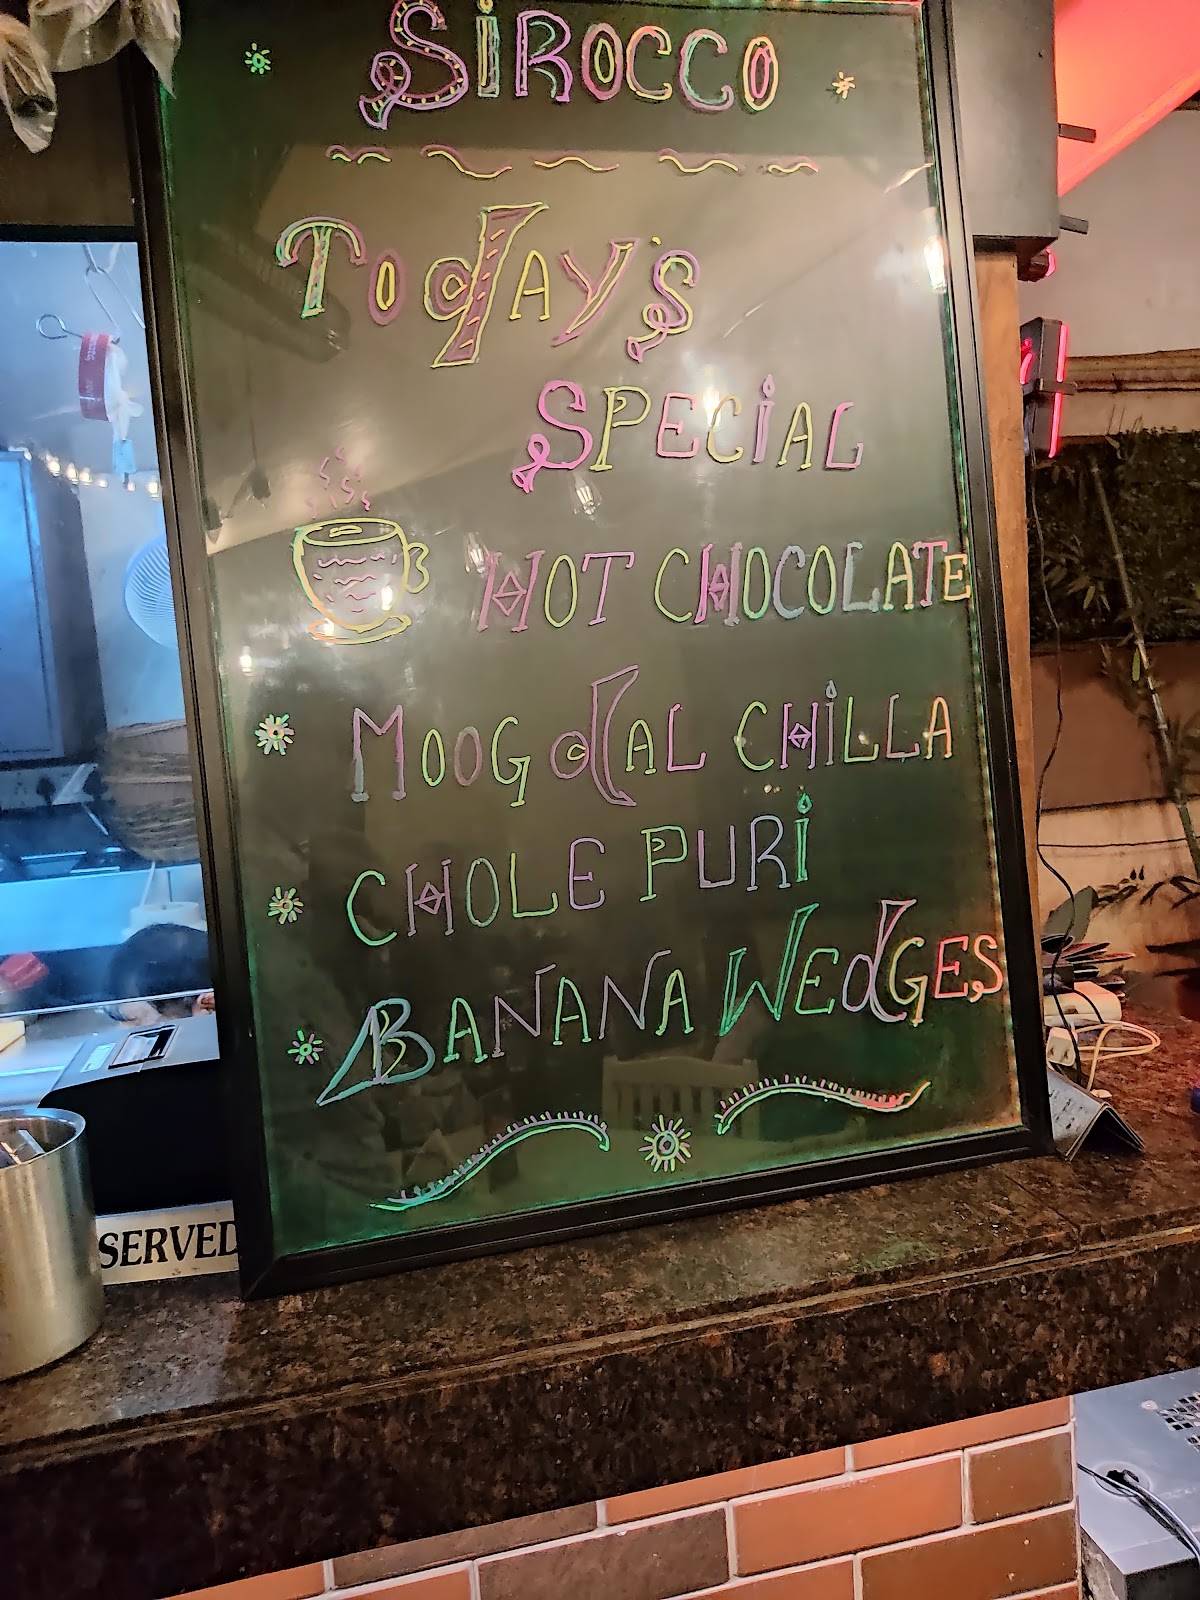 SiROCCO
TodAy's
SPECiAL
HOT CHOCOLATE
MOOG dAL CHiLLA
CHOLE PURi
BANANA WEdGES
SERVED